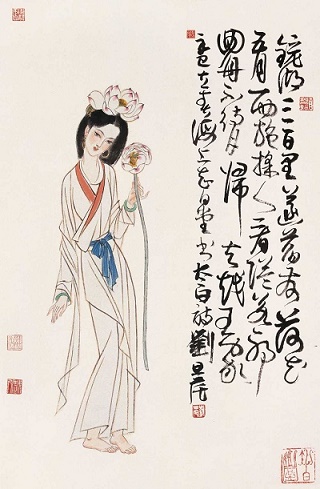 鏡湖三百里菡萏發荷花
五月西施採人看隘若耶
回舟不待月歸去越王家
海上 書太白詩劉旦宅